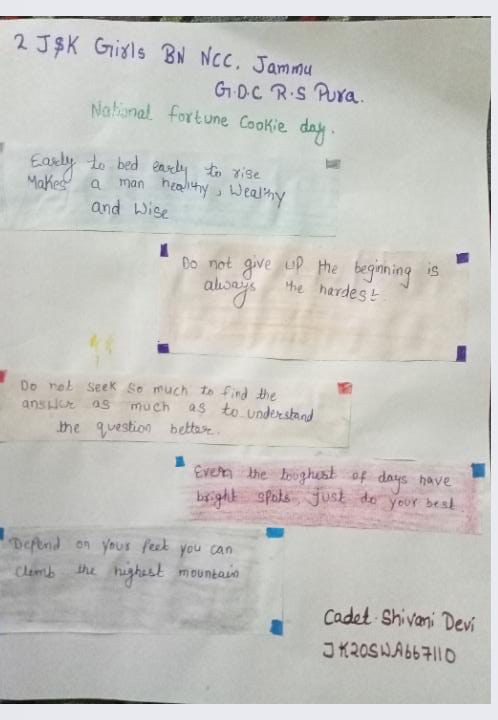 2 J$K Girls BN NCC, Jammu
G.D.C R.S Pura.
National fortune Cookie day.
Early to bed early to rise
Makes a man healthy, Wealthy
and Wise
Do not give up the beginning is
always the hardest.
Do not seek so much to find the
answer as much as to understand
the question better.
Even the toughest of days have
bright spots, just do your best
Depend on your feet you can
climb the highest mountain
Cadet. Shivani Devi
JK20SWA667110